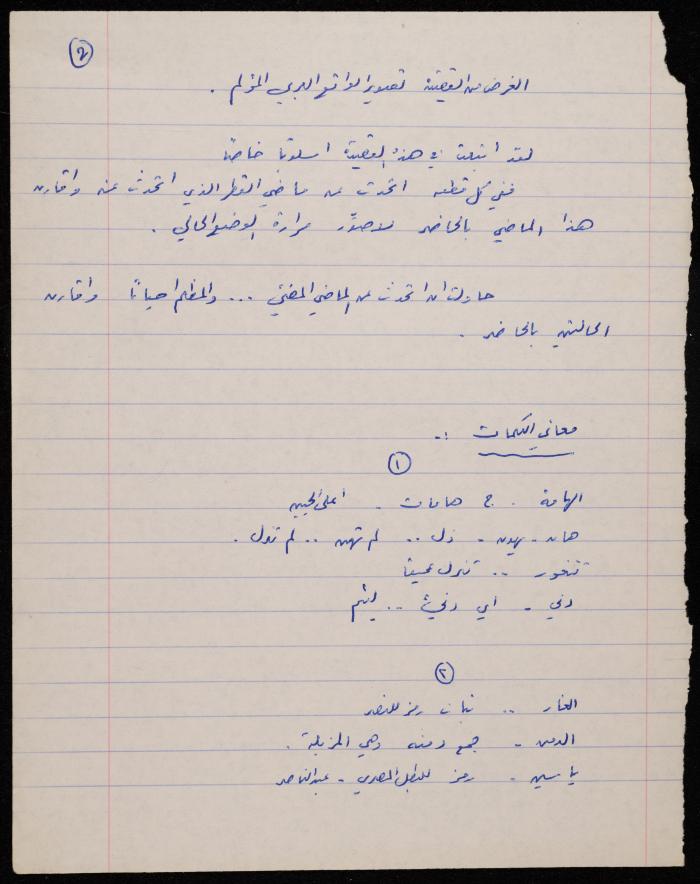 ٢
الغرض من القصيدة تصوير الواقع العربي المؤلم .
لقد اتبعت في هذه القصيدة اسلوبا خاصا
ففي كل قطعه اتحدث عن ماضي القطر الذي اتحدث عنه واقارن
هذا الماضي بالحاضر لاصوّر مرارة الوضع الحالي .
حاولت ان اتحدث عن الماضي المضيء ... والمظلم احيانا واقارن
الحالتين بالحاضر .
معاني الكلمات :-
١
الهامة . ج هامات - اعلى الجبين
هان - يهون - ذل .. لم تهن .. لم تذل .
تغور .. تنزل عميقا
دني - اي دنيء .. لئيم
٢
الغار .. نبات رمز للنصر
الدمن - جمع دمنه وهي المزبلة .
ياسين - رمز للبطل المصري - عبد الناصر